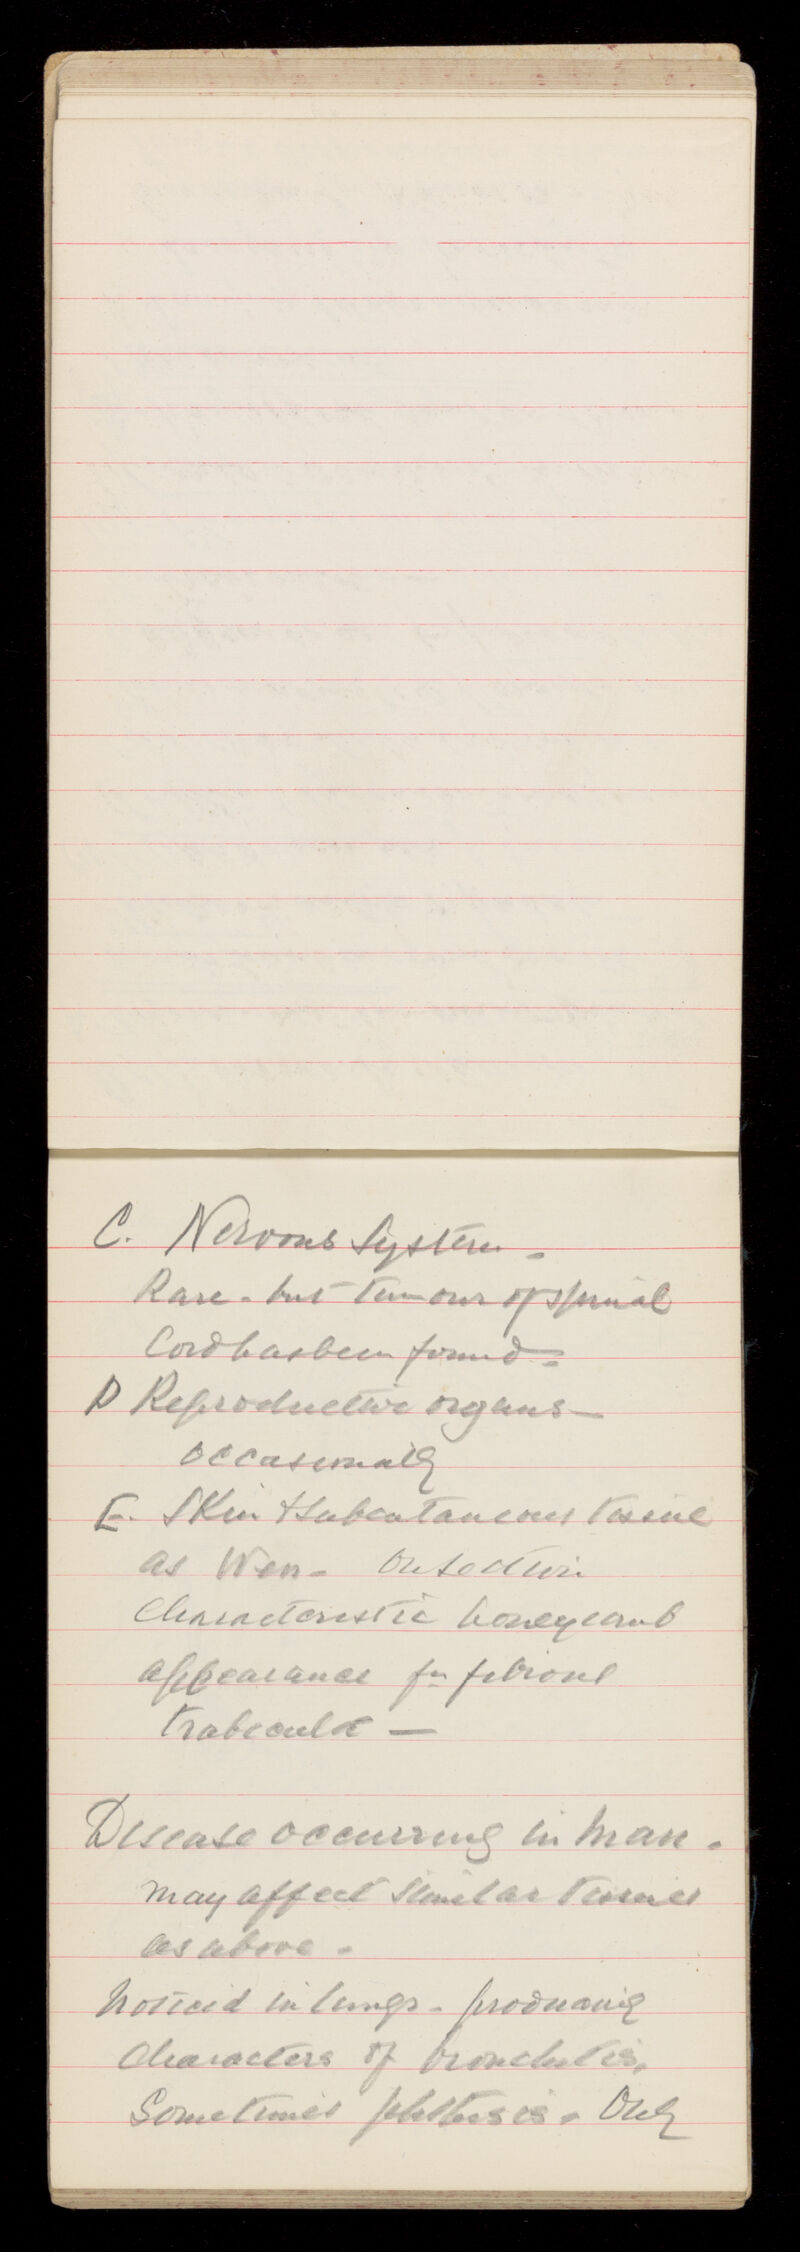 C. Nervous System -
Rare - but tumour of spinal
Cord has been found =
D Reproductive organs -
occasionally
E. Skin & subcutaneous tissue
as Wen - On section
characteristic honeycomb
appearance fm fibrous
trabeculæ -
Disease occurring in Man -
May affect similar tissues
as above -
Noticed in lungs - producing
characters of bronchitis,
Sometimes phthisis - Only